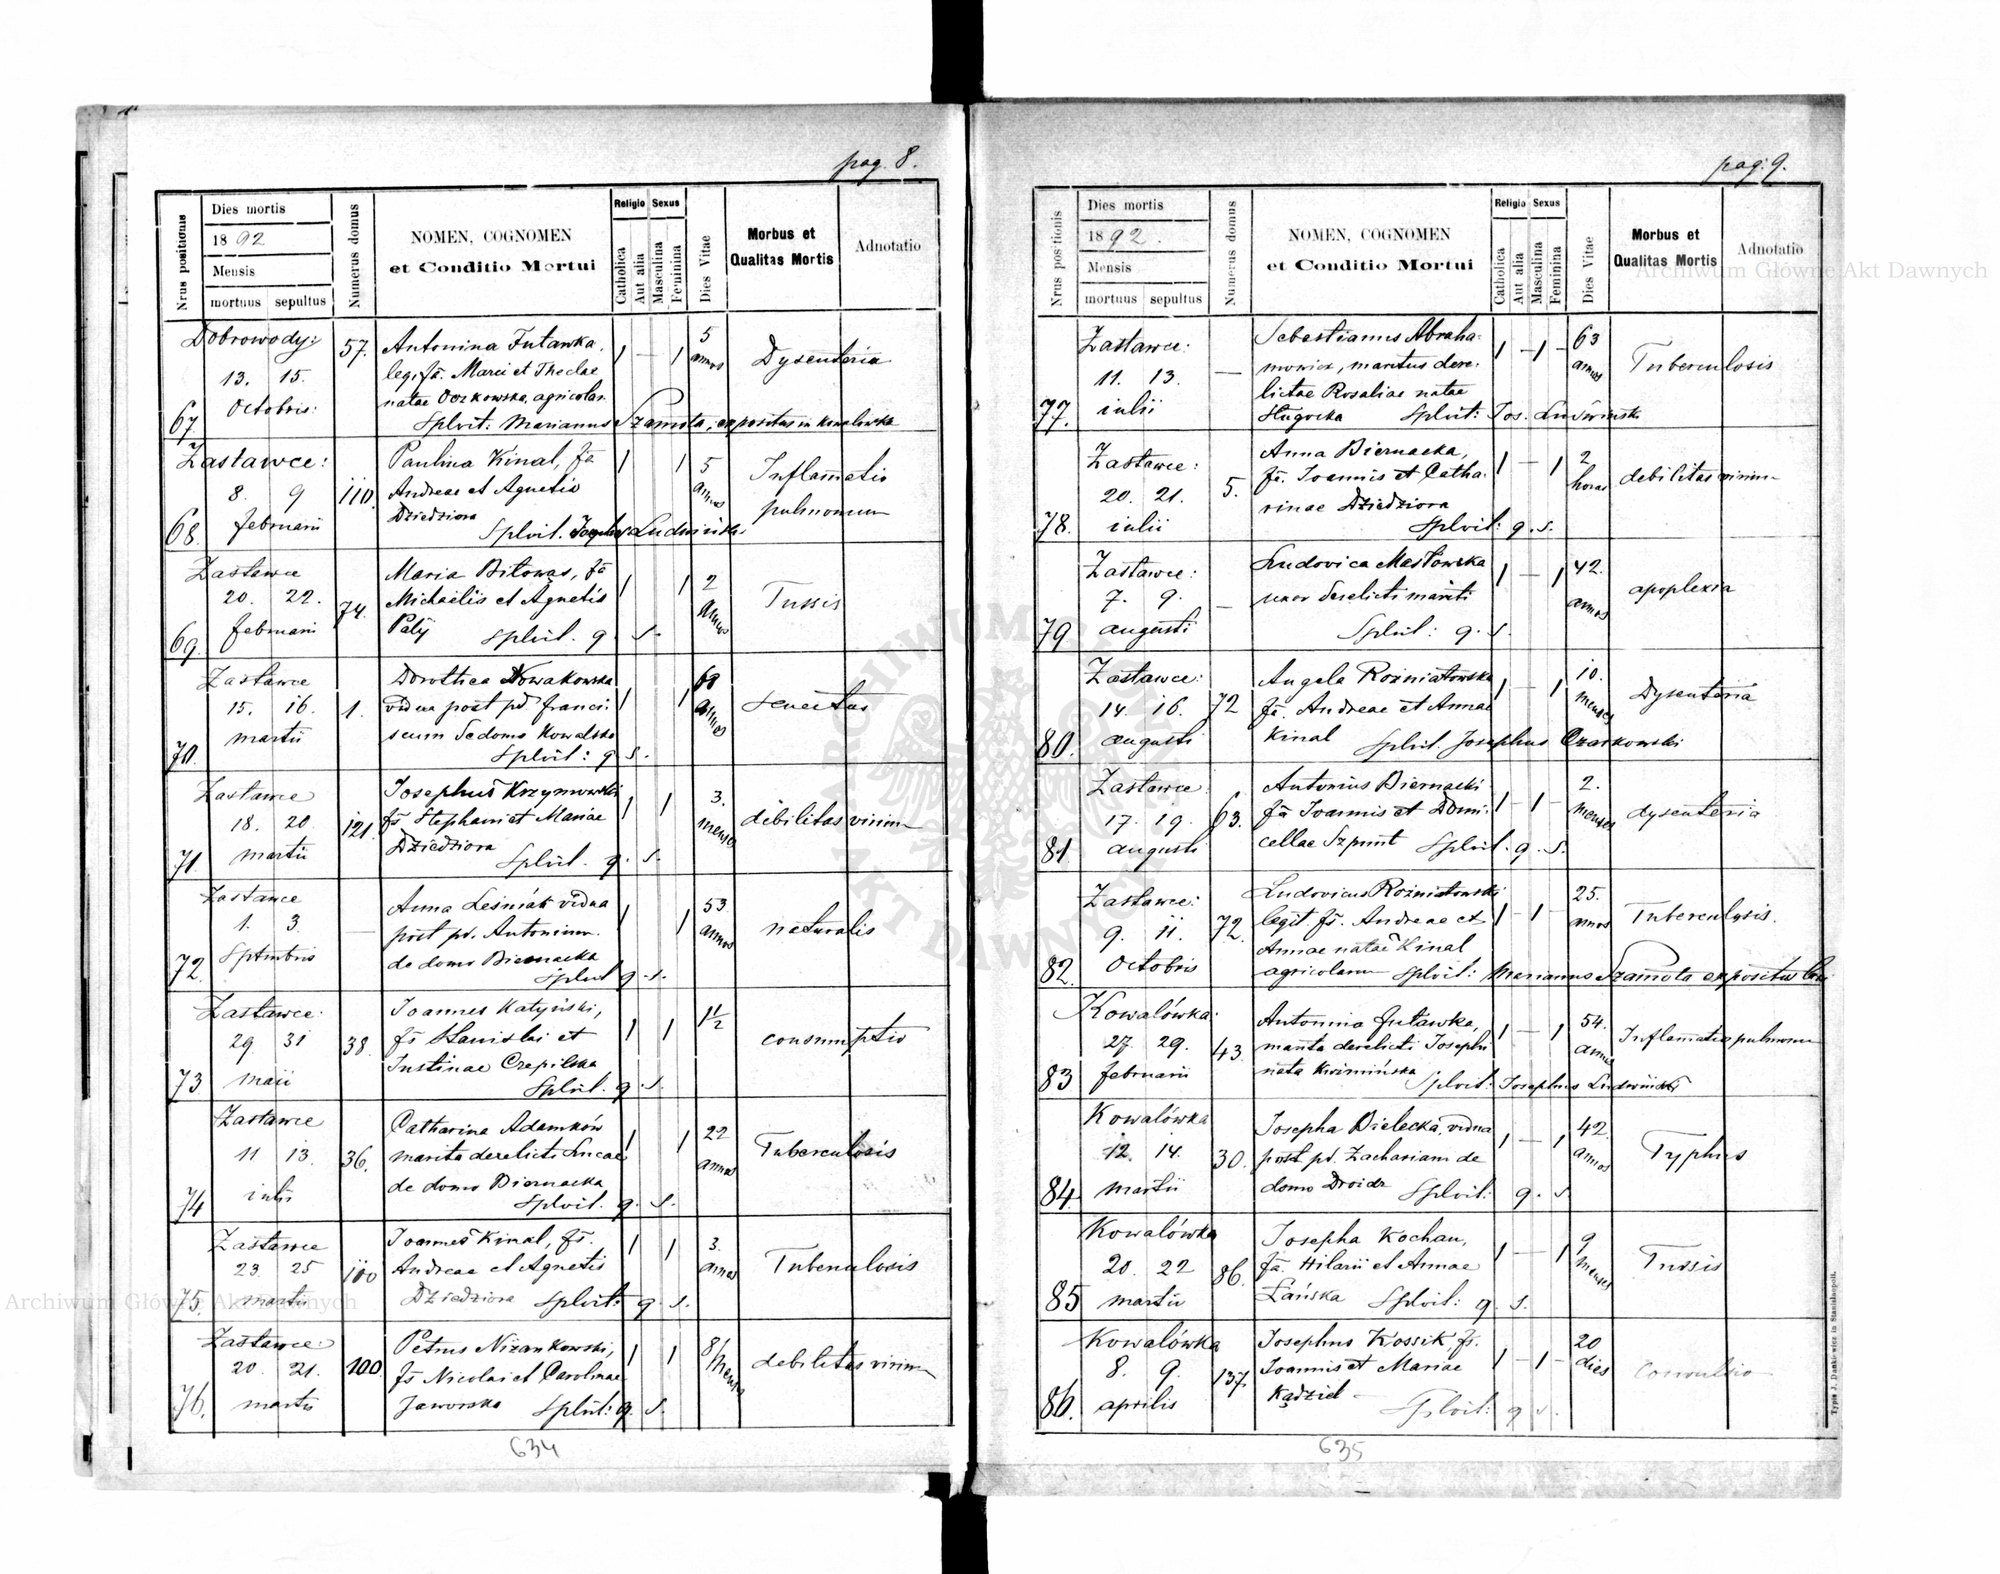 pag. 8.
Nrus positionis
Dies mortis
1892
Mensis
mortuus sepultus
Numerus domus
NOMEN, COGNOMEN
et Conditio Mortui
Religio Sexus
Catholica
Aut alia
Masculina
Feminina
Dies Vitae
Morbus et
Qualitas Mortis
Adnotatio
Dobrowody:
13. 15.
Octobris:
67.
57.
Antonina Futawka,
leg. fa. Marci et Theclae
natae agricolar.
Splvit: Marianus Szamota, expositus in Kowalówka
1 — 1
5
annos
Dysenteria
Zastawce:
8. 9
februarii
68.
110.
Paulina Kinal, fa
Andreae et Agnetis
Dziedziora
Splvit. Josephus Ludwiński
1 1
5
annos
Inflamatio
pulmonum
Zastawce
20. 22.
februarii
69.
74.
Maria Bitowas, fa
Michaëlis et Agnetis
Palij Splvit. q. s.
1 1
2
annos
Tussis
Zastawce
15. 16.
martii
70.
1.
Dorothea Nowakowska
vidua post pd. Franci
scum de domo Kowalska
Splvit: q. s.
1 1
annos
senectus
Zastawce
18. 20.
martii
71.
121.
Josephus Krzymowski
fs Stephani et Mariae
Dziedziora Splvit. q. s.
1 1
3.
menses
debilitas virium
Zastawce
1. 3.
Sptmbris
72.
—
Anna Leśniak vidua
post pd. Antonium
de domo Biernacka
Splvit q. s.
1 1
53
annos
naturalis
Zastawce:
29. 31
maii
73.
38.
Joannes Katyński,
fs Stanislai et
Justinae Czepilska
Splvit. q. s.
1 1
1½
consumptio
Zastawce
11 13.
iulii
74
36.
Catharina Adamków
marita derelicti Lucae
de domo Biernacka
Splvit. q. s.
1 1
22
annos
Tuberculosis
Zastawce
23. 25
martii
75.
110
Joannes Kinal, fs.
Andreae et Agnetis
Dziedziora Splvit: q. s.
1 1
3.
annos
Tuberculosis
Zastawce:
20. 21.
martii
76.
100.
Petrus Niżankowski,
fs Nicolai et Carolinae
Jaworska Splvit: q. s.
1 1
8
menses
debilitas virium
634
pag: 9.
Nrus positionis
Dies mortis
1892.
Mensis
mortuus sepultus
Numerus domus
NOMEN, COGNOMEN
et Conditio Mortui
Religio Sexus
Catholica
Aut alia
Masculina
Feminina
Dies Vitae
Morbus et
Qualitas Mortis
Adnotatio
Zastawce:
11. 13.
iulii
77.
—
Sebastianus Abraha-
mowicz, maritus dere-
lictae Rosaliae natae
Długocka Splvit: Jos. Ludwiński
1 — 1 —
63
annos
Tuberculosis
Zastawce:
20. 21.
iulii
78.
5.
Anna Biernacka,
fa. Joannis et Catha-
rinae Dziedziora
Splvit: q. s.
1 — 1
2
horas
debilitas virium
Zastawce:
7. 9.
augusti
79.
—
Ludovica Masłowska
uxor derelicti mariti
Splvit: q. s.
1 — 1
42.
annos
apoplexia
Zastawce:
14. 16.
augusti
80.
72
Angela Rożniatowska
fa. Andreae et Annae
Kinal Splvit. Josephus Czarkowski
1 — 1
10.
menses
Dysenteria
Zastawce
17. 19.
augusti
81
63.
Antonius Biernacki
fs Joannis et Domi-
cellae Szpunt Splvit. q. s.
1 — 1 —
2.
menses
dysenteria
Zastawce:
9. 11.
Octobris
82.
72.
Ludovicus Rożniatowski
legit fs. Andreae et
Annae natae Kinal
agricolarum Splvit: Marianus Szamota expositus
1 — 1 —
25.
annos
Tuberculosis.
Kowalówka:
27. 29.
februarii
83
43.
Antonina Futawka,
marita derelicti Josephi
nata Kuźmińska Splvit: Josephus Ludwiński
1 — 1
54.
annos
Inflamatio pulmonum
Kowalówka
12. 14.
martii
84.
30.
Josepha Bielecka, vidua
post pd. Zachariam de
domo Droidz Splvit: q. s.
1 — 1
42.
annos
Typhus
Kowalówka
20. 22
martii
85
86.
Josepha Kochan,
fa. Hilarii et Annae
Łańska Splvit: q. s.
1 — 1
9
menses
Tussis
Kowalówka
8. 9.
aprilis
86.
137.
Josephus Kossik, fs.
Joannis et Mariae
Kądziel — Splvit: q. s.
1 — 1 —
20
dies
Convulsio
635
Typis J. Dankiewicz in Stanisłopoli.
Archiwum Główne Akt Dawnych
Archiwum Główne Akt Dawnych
ARCHIWUM GŁÓWNE AKT DAWNYCH